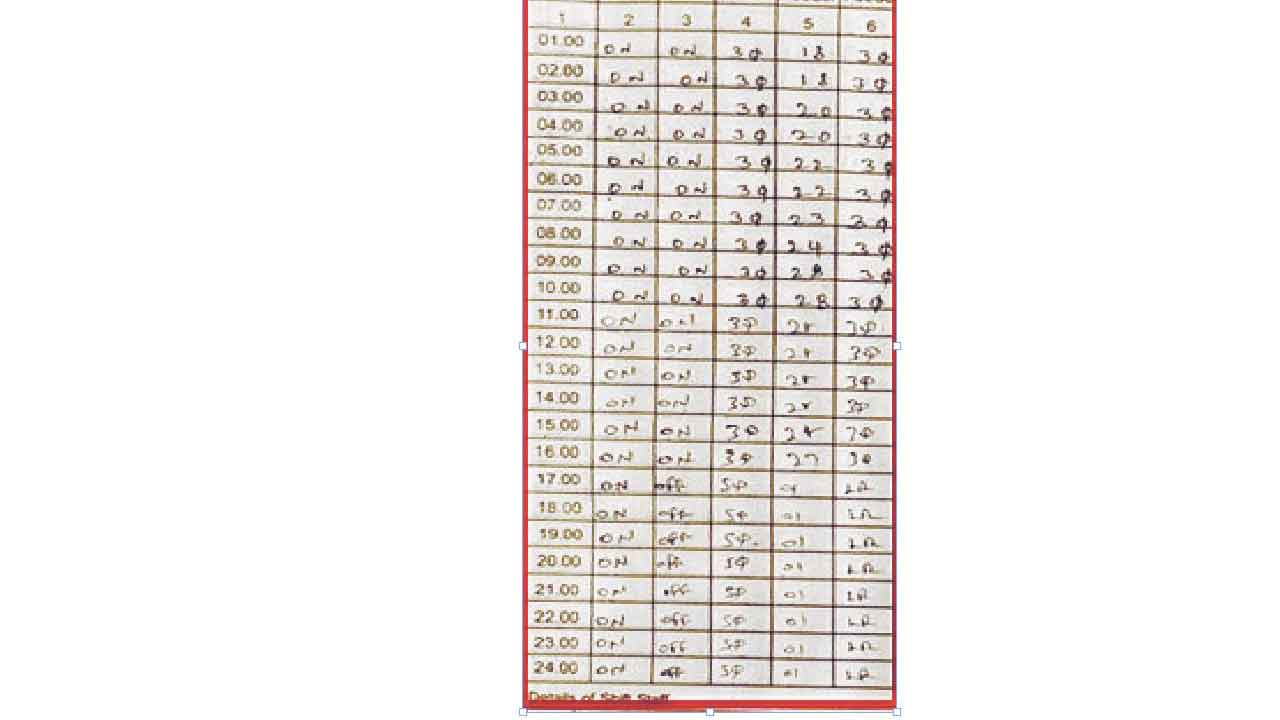 1 2 3 4 5 6
01.00 ON ON 3Φ 18 3Φ
02.00 ON ON 3Φ 18 3Φ
03.00 ON ON 3Φ 20 3Φ
04.00 ON ON 3Φ 20 3Φ
05.00 ON ON 3Φ 22 3Φ
06.00 ON ON 3Φ 22 3Φ
07.00 ON ON 3Φ 23 3Φ
08.00 ON ON 3Φ 24 3Φ
09.00 ON ON 3Φ 28 3Φ
10.00 ON ON 3Φ 28 3Φ
11.00 ON ON 3Φ 3Φ
12.00 ON ON 3Φ 3Φ
13.00 ON ON 3Φ 3Φ
14.00 ON ON 3Φ 3Φ
15.00 ON ON 3Φ 3Φ
16.00 ON ON 3Φ 27 3Φ
17.00 ON off SΦ 01
18.00 ON off SΦ 01
19.00 ON off SΦ 01
20.00 ON off SΦ 01
21.00 ON off SΦ 01
22.00 ON off SΦ 01
23.00 ON off SΦ 01
24.00 ON off SΦ 01
Details of Shift Staff